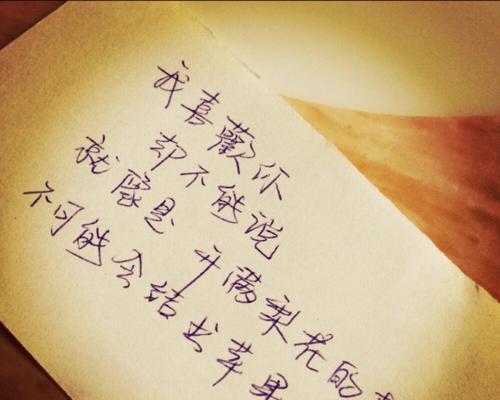 我喜歡你
却不能说
就像是 开满梨花的
不可能会结出苹果